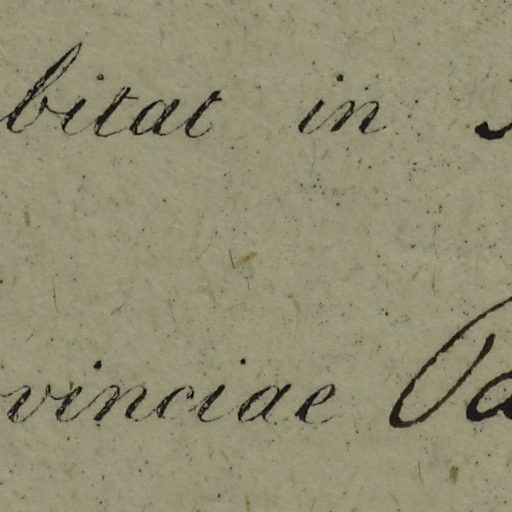 bitat in
vinciae Pa